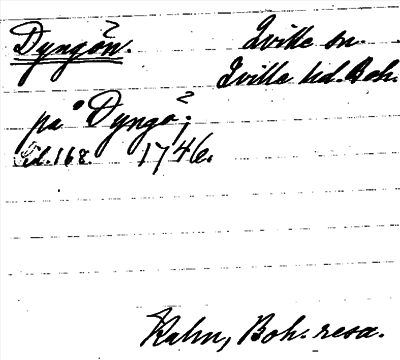 Dyngön. Qville sn.
Qville hd. Boh.
på Dyngö;
sid. 168. 1746.
Kalm, Boh. resa.